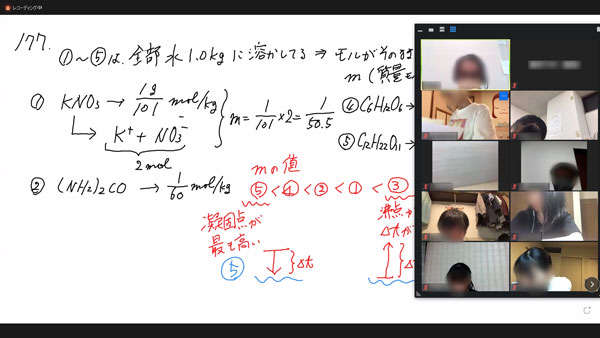 レコーディング中
177.
①〜⑤は、全部 水1.0kgに溶かしてる ⇒ モルがそのまま
m (質量モ
① KNO₃ → 1g/101 mol/kg
K⁺ + NO₃⁻
2mol
m = 1/101 ×2 = 1/50.5
④ C₆H₁₂O₆ →
⑤ C₁₂H₂₂O₁₁ →
② (NH₂)₂CO → 1/60 mol/kg
mの値
⑤ < ④ < ② < ① < ③
凝固点が
最も高い
⑤
Δt
沸点が
Δtが